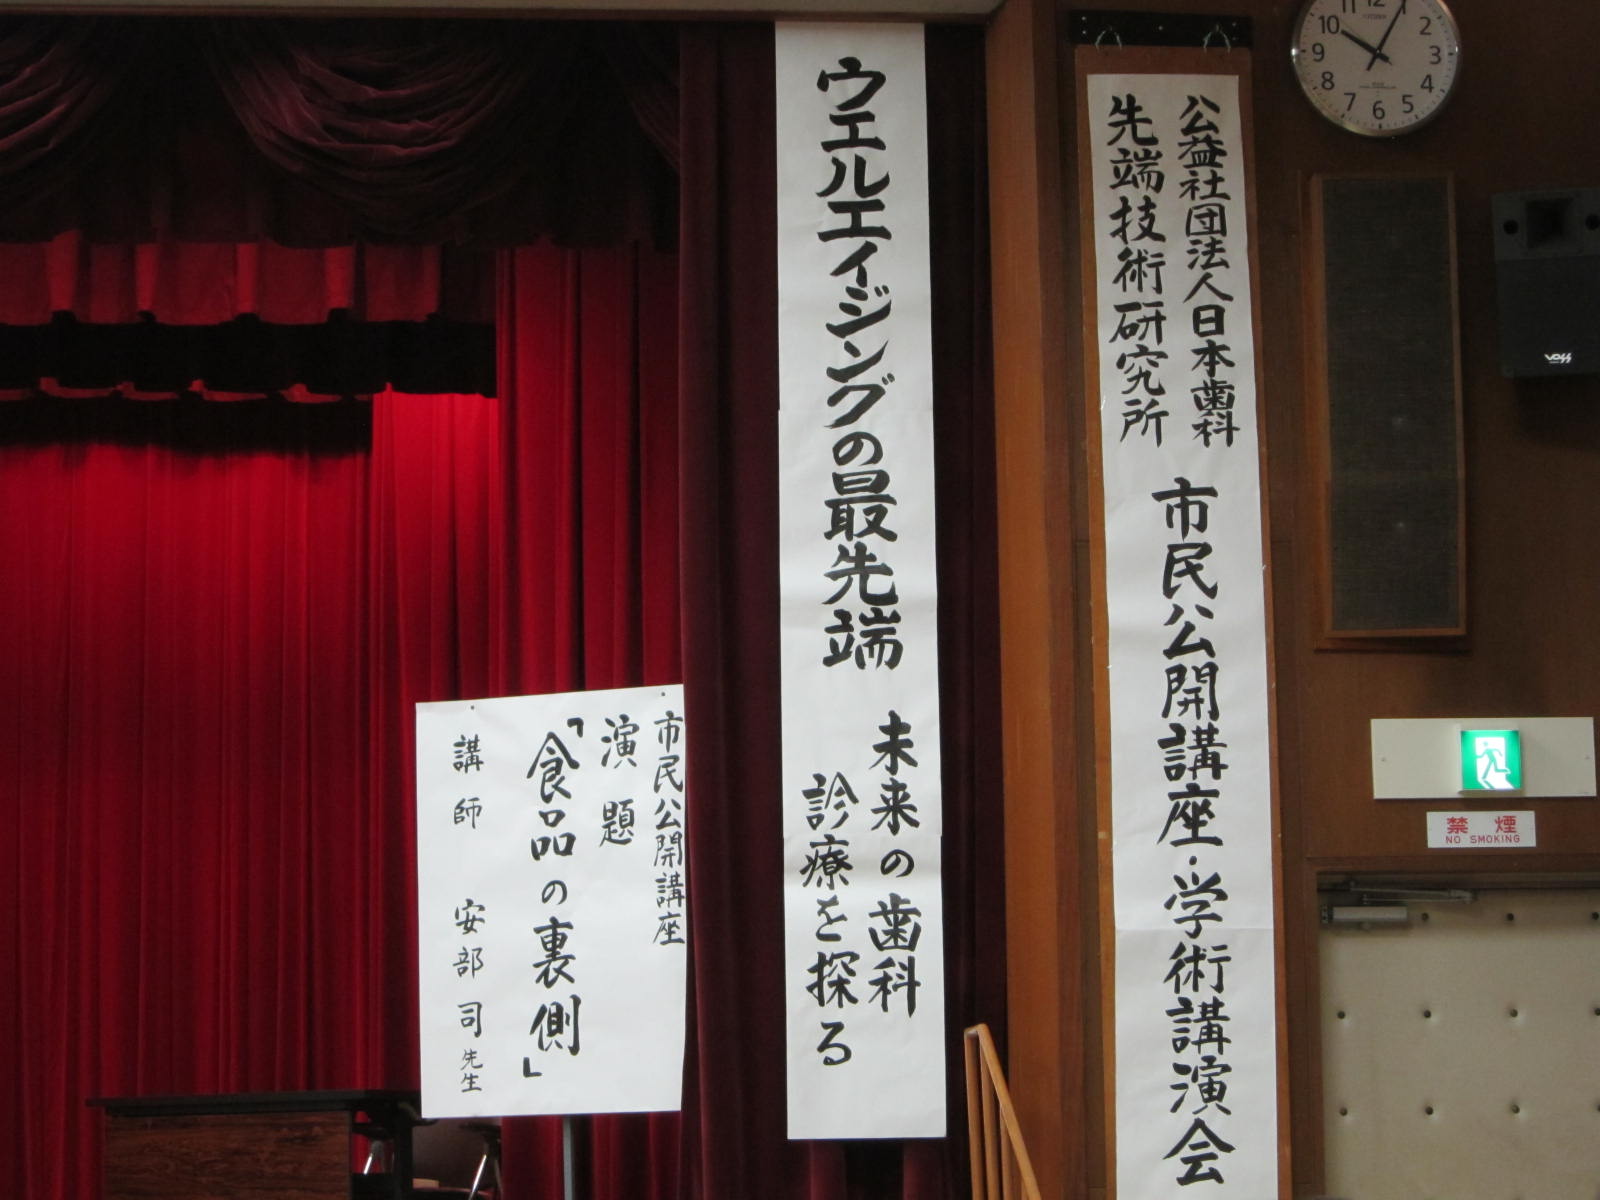 公益社団法人日本歯科
先端技術研究所
市民公開講座・学術講演会
ウエルエイジングの最先端
未来の歯科
診療を探る
市民公開講座
演題
「食品の裏側」
講師 安部司先生
12
1
2
3
4
5
6
7
8
9
10
11
CITIZEN
VOSS
禁煙
NO SMOKING